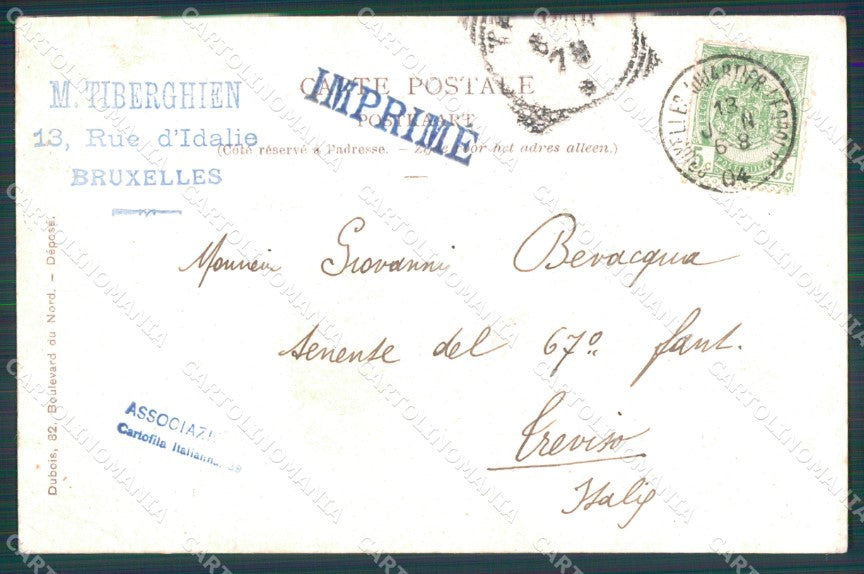 M. TIBERGHIEN
13, Rue d'Idalie
BRUXELLES
CARTE POSTALE
POSTKAART
IMPRIME
(Côté réservé à l'adresse. — Zijde voor het adres alleen.)
BRUXELLES (QUARTIER LEOPOLD)
13
6-8
04
Monsieur Giovanni Bevacqua
tenente del 67º fant.
Treviso
Italy
ASSOCIAZ
Cartofila Italiana
Dubois, 82, Boulevard du Nord. — Déposé.
CARTOLINOMANIA